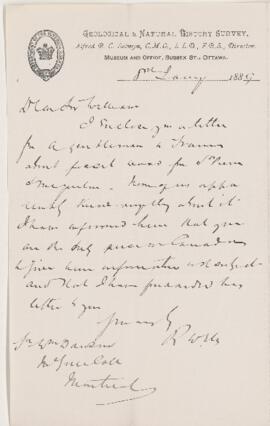 GEOLOGICAL & NATURAL HISTORY SURVEY,
Alfred R. C. Selwyn, C.M.G., L.L.D., F.R.S., Director.
MUSEUM AND OFFICE, SUSSEX ST., OTTAWA.
8th Jany 1889
Dear Sir William
I enclose you a letter
from a gentleman in France
about fossil wood from St Pierre
& Miquelon.
know anything about it
I have informed him that you
are the only person in Canada
to give him information on the subject
and that I have forwarded his
letter to you
Yours truly
R W Ells
Sr Wm Dawson
McGill Coll
Montreal